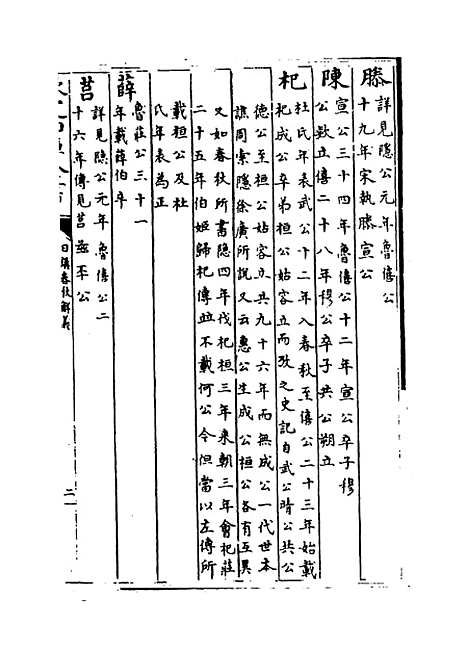 滕詳見隱公元年魯僖公
十九年宋執滕宣公
陳宣公三十四年魯僖公十二年宣公卒子穆
公款立僖二十八年穆公卒子共公朔立
杞杜氏年表武公十二年入春秋至僖公二十三年始載
杞成公卒弟桓公姑容立而攷之史記自武公靖公共公
德公至桓公姑容立共九十六年而無成公一代世本
譙周索隱徐廣所說又云惠公生成公桓公各有互異
又如春秋所書隱四年伐杞桓三年來朝三年會杞莊
二十五年伯姬歸杞傳並不載何公今但當以左傳所
載桓公及杜
氏年表為正
薛魯莊公三十一
年載薛伯卒
莒詳見隱公元年魯僖公二
十六年傳見莒茲丕公
日講春秋解義
二